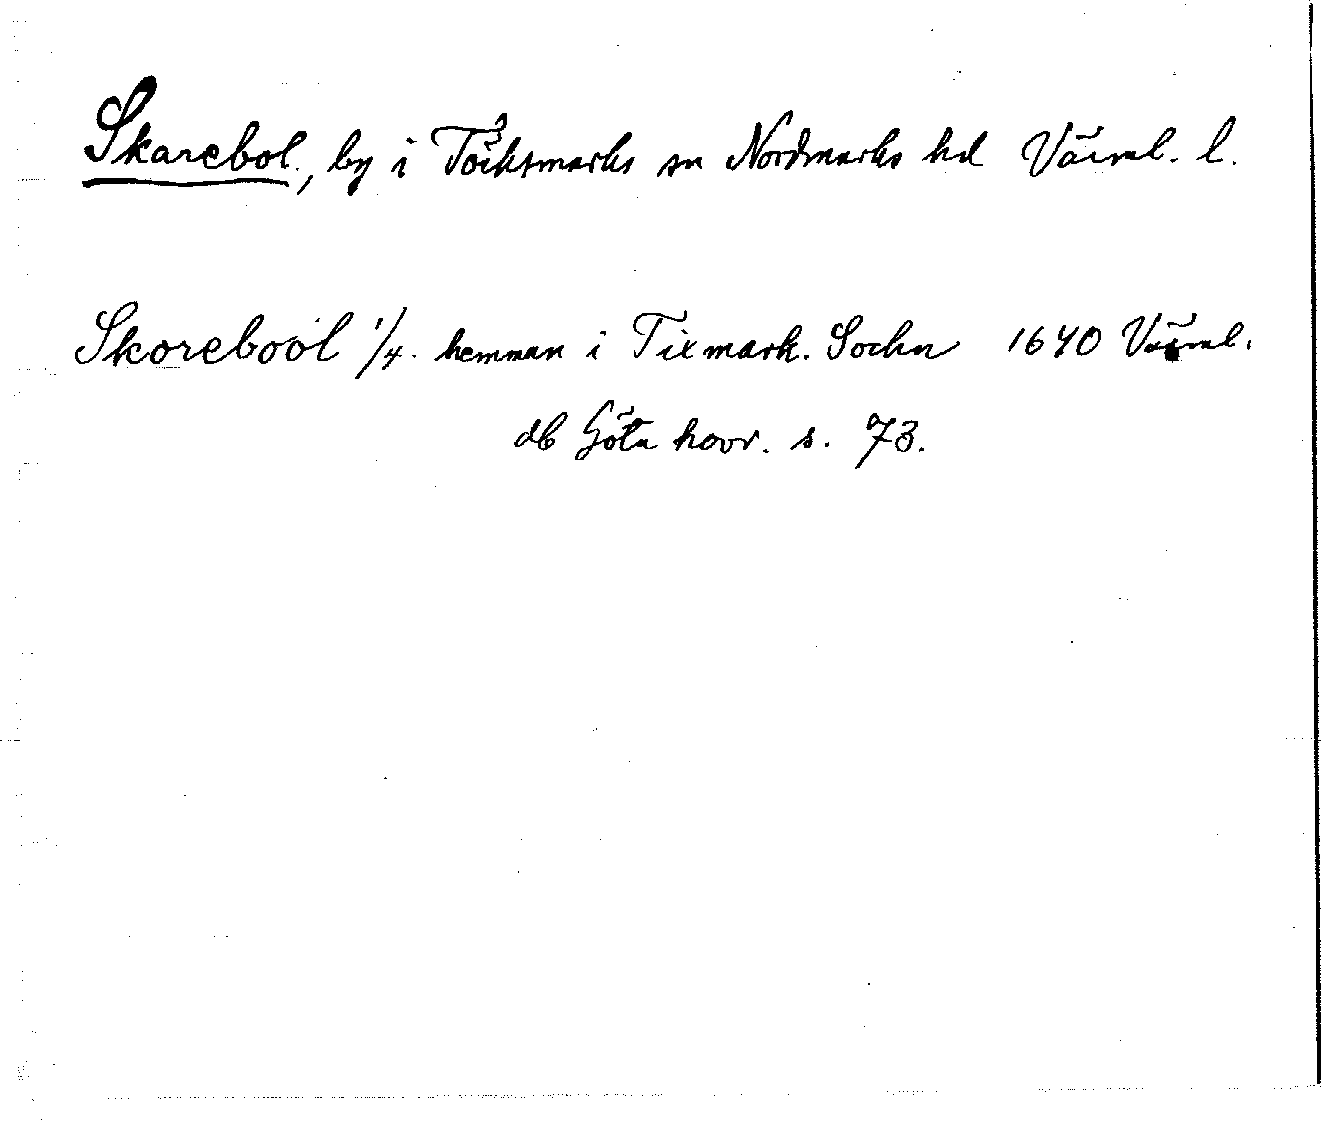 Skarebol, by i Töcksmarks sn Nordmarks hd Värml. l.
Skorebool 1/4. hemman i Tixmark. Sochn 1640 Värml.
db Göta hovr. s. 73.